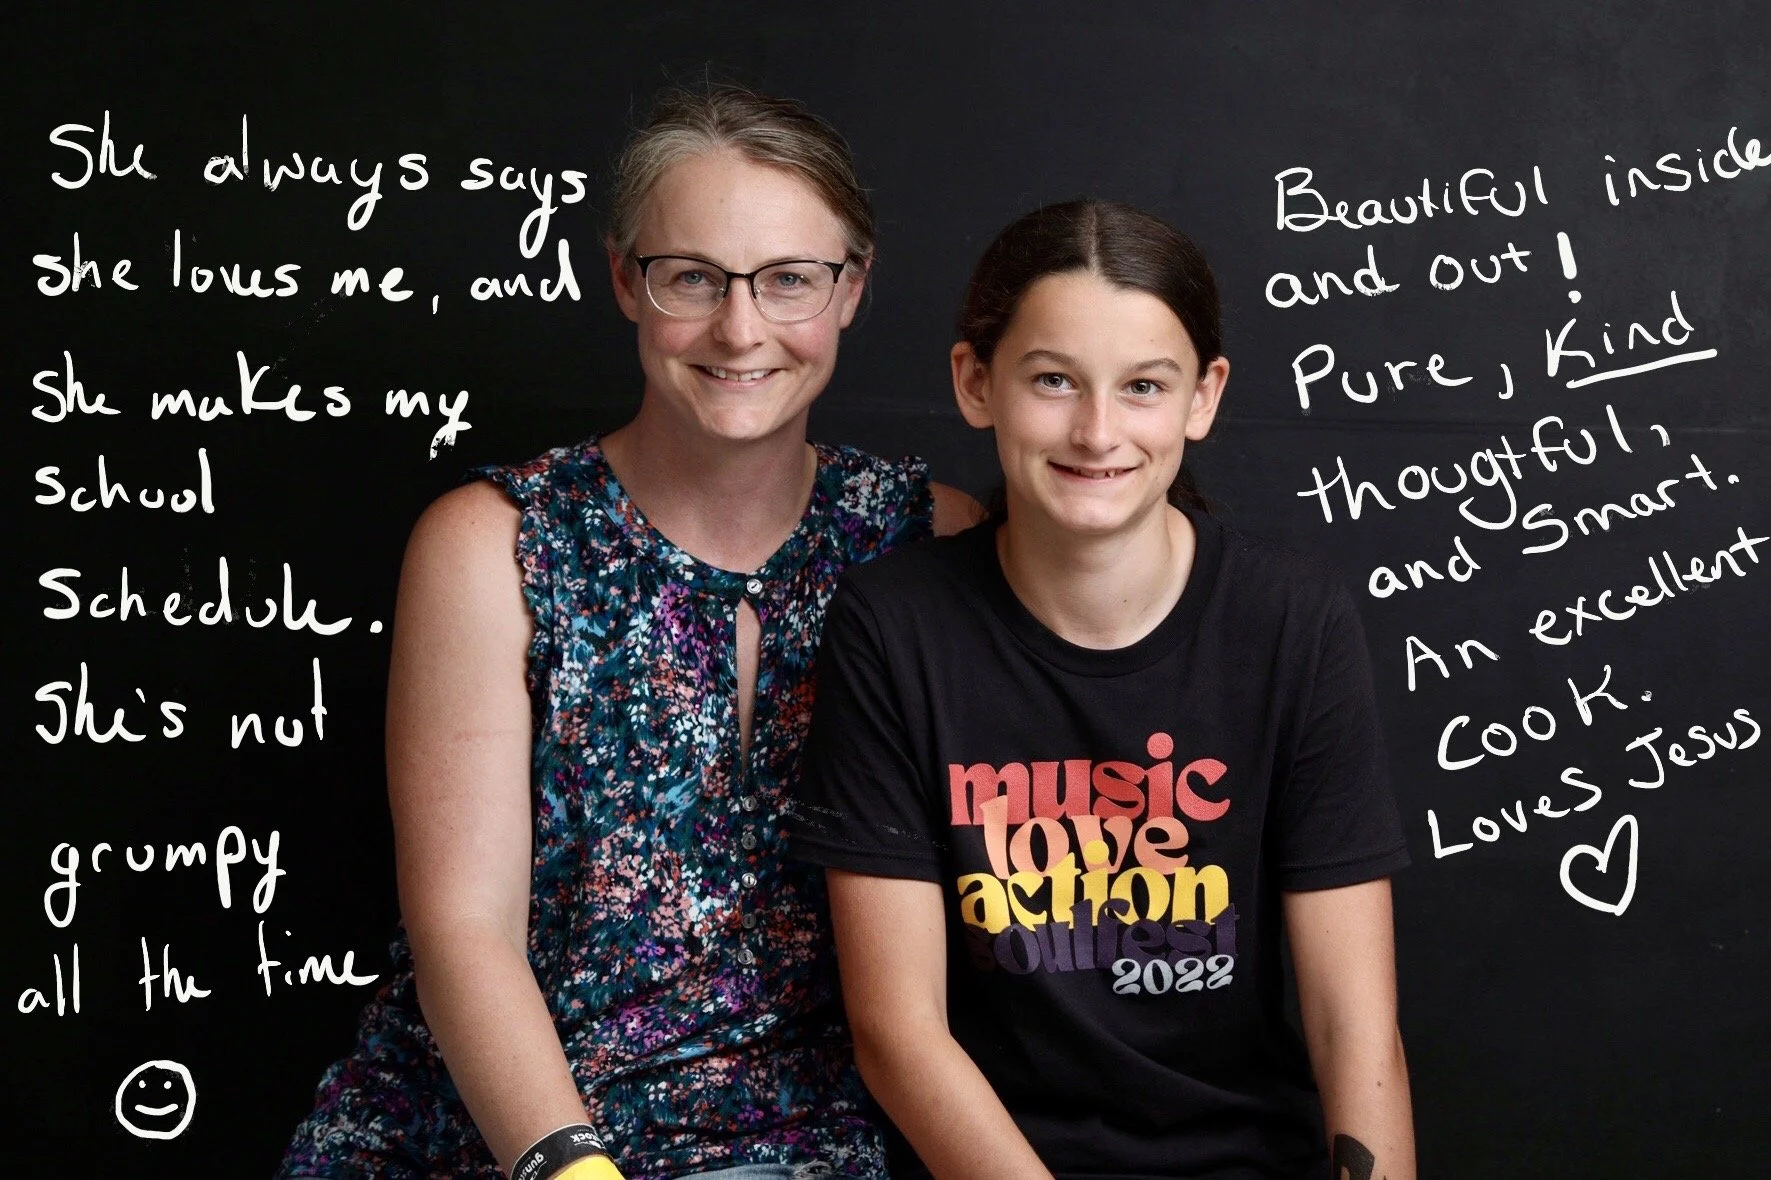 She always says
she loves me, and
she makes my
school
schedule.
She's not
grumpy
all the time
Beautiful inside
and out!
Pure, Kind
thougtful,
and Smart.
An excellent
Cook.
Loves Jesus
music
love
action
soulfest
2022